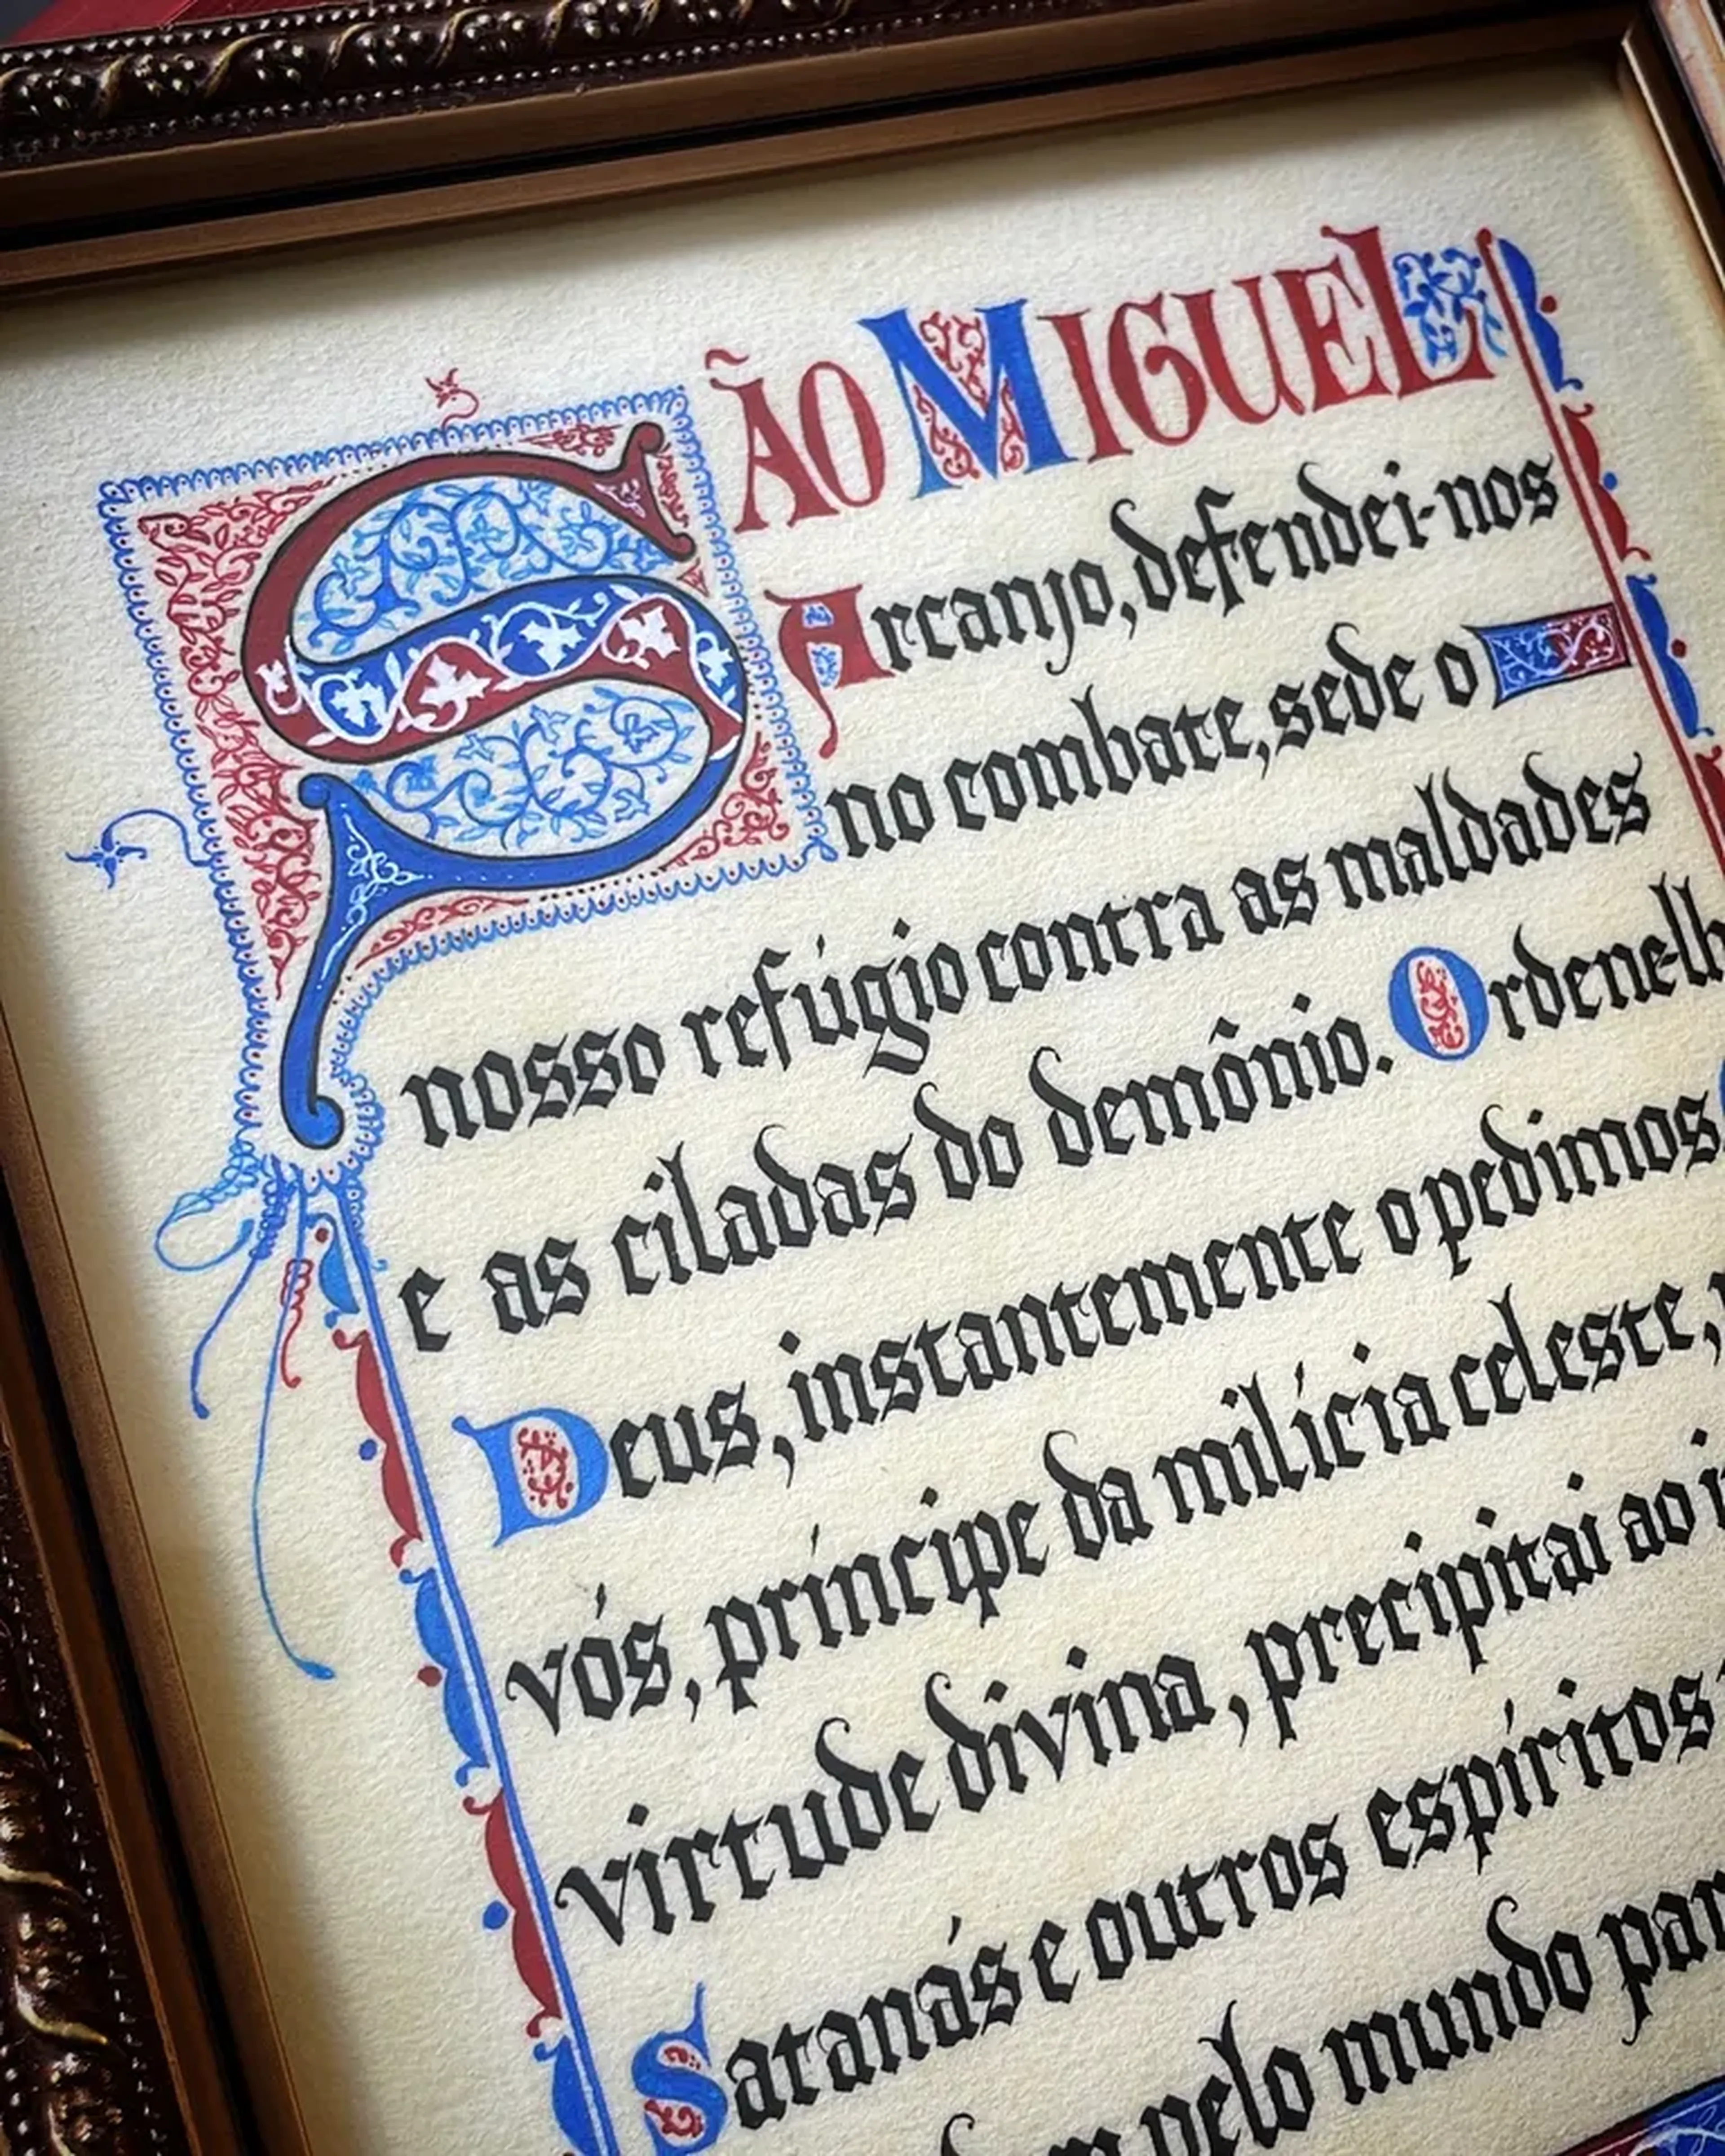 SÃO MIGUEL
Arcanjo, defendei-nos
no combate, sede o
nosso refúgio contra as maldades
e as ciladas do demônio. Ordene-lh
Deus, instantemente o pedimos
vós, príncipe da milícia celeste,
virtude divina, precipitai ao
Satanás e outros espíritos
pelo mundo par